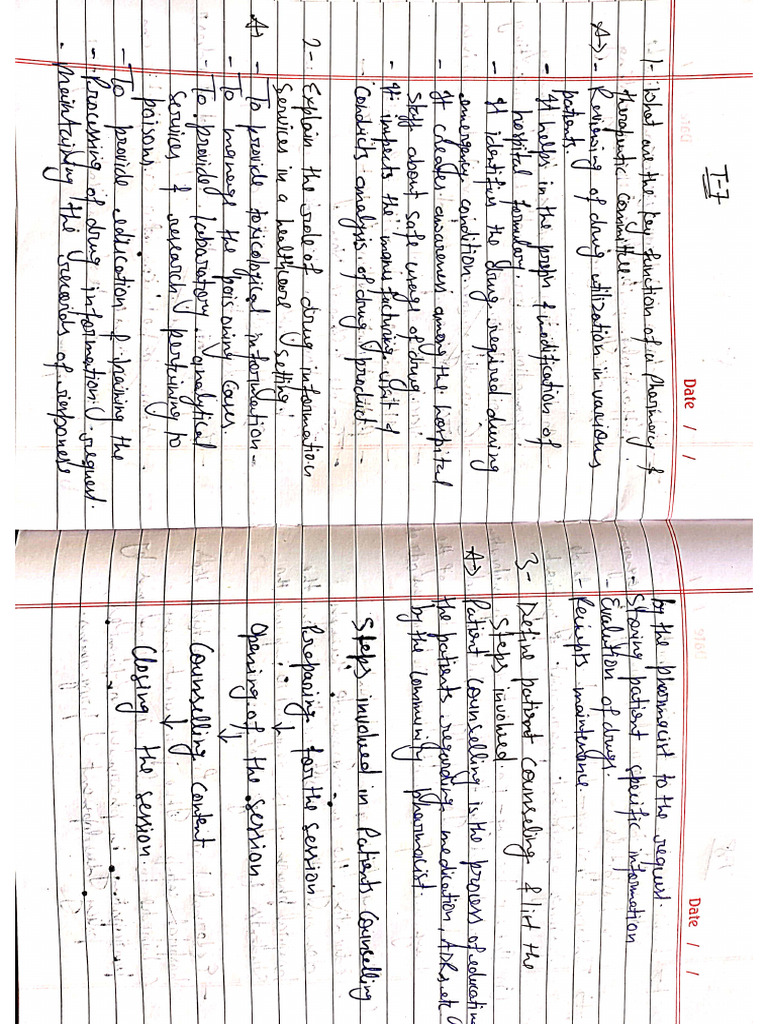 T-7
Date / /
1- What are the key function of a Pharmacy &
therapeutic committee.
A→ - Reviewing of drug utilization in various
patients.
- It helps in the & modification of
hospital formulary.
- It identifies the drug required during
emergency condition.
- It creates awareness among the hospital
staff about safe usage of drug.
- It inspects the manufacturing unit &
conducts analysis of drug product.
2- Explain the role of drug information
services in a healthcare setting.
A) - To provide toxicological information
- To manage the poisoning cases.
- To provide laboratory analytical
services & research pertaining to
poisons.
- To provide education & training the
- Processing of drug information request.
- Maintaining the records of response
Date / /
by the pharmacist to the request.
- Storing patient specific information
- Evalution of drugs.
- Reciepts
3- Define patient counseling & list the
Steps involved.
A→ Patient counselling is the process of educating
the patients regarding medication, ADRs, etc
by the community pharmacist.
Steps involved in Patients Counselling
Preparing for the session
↓
Opening of the session
↓
Counselling Content
↓
Closing the session